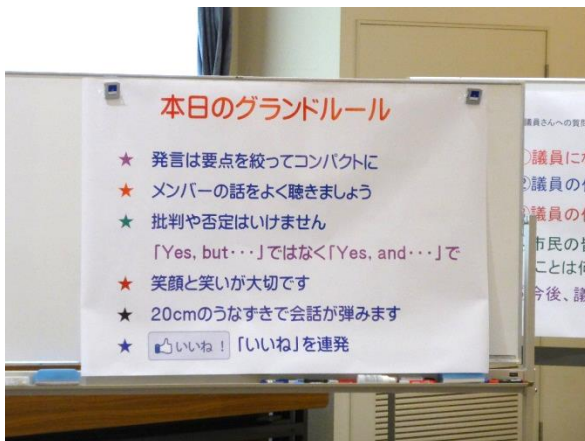 本日のグランドルール
★ 発言は要点を絞ってコンパクトに
★ メンバーの話をよく聴きましょう
★ 批判や否定はいけません
「Yes, but・・・」ではなく「Yes, and・・・」で
★ 笑顔と笑いが大切です
★ 20cmのうなずきで会話が弾みます
★ いいね！ 「いいね」を連発
議員さんへの質問
議員に
②議員の
議員の
市民の
ことは
今後、議